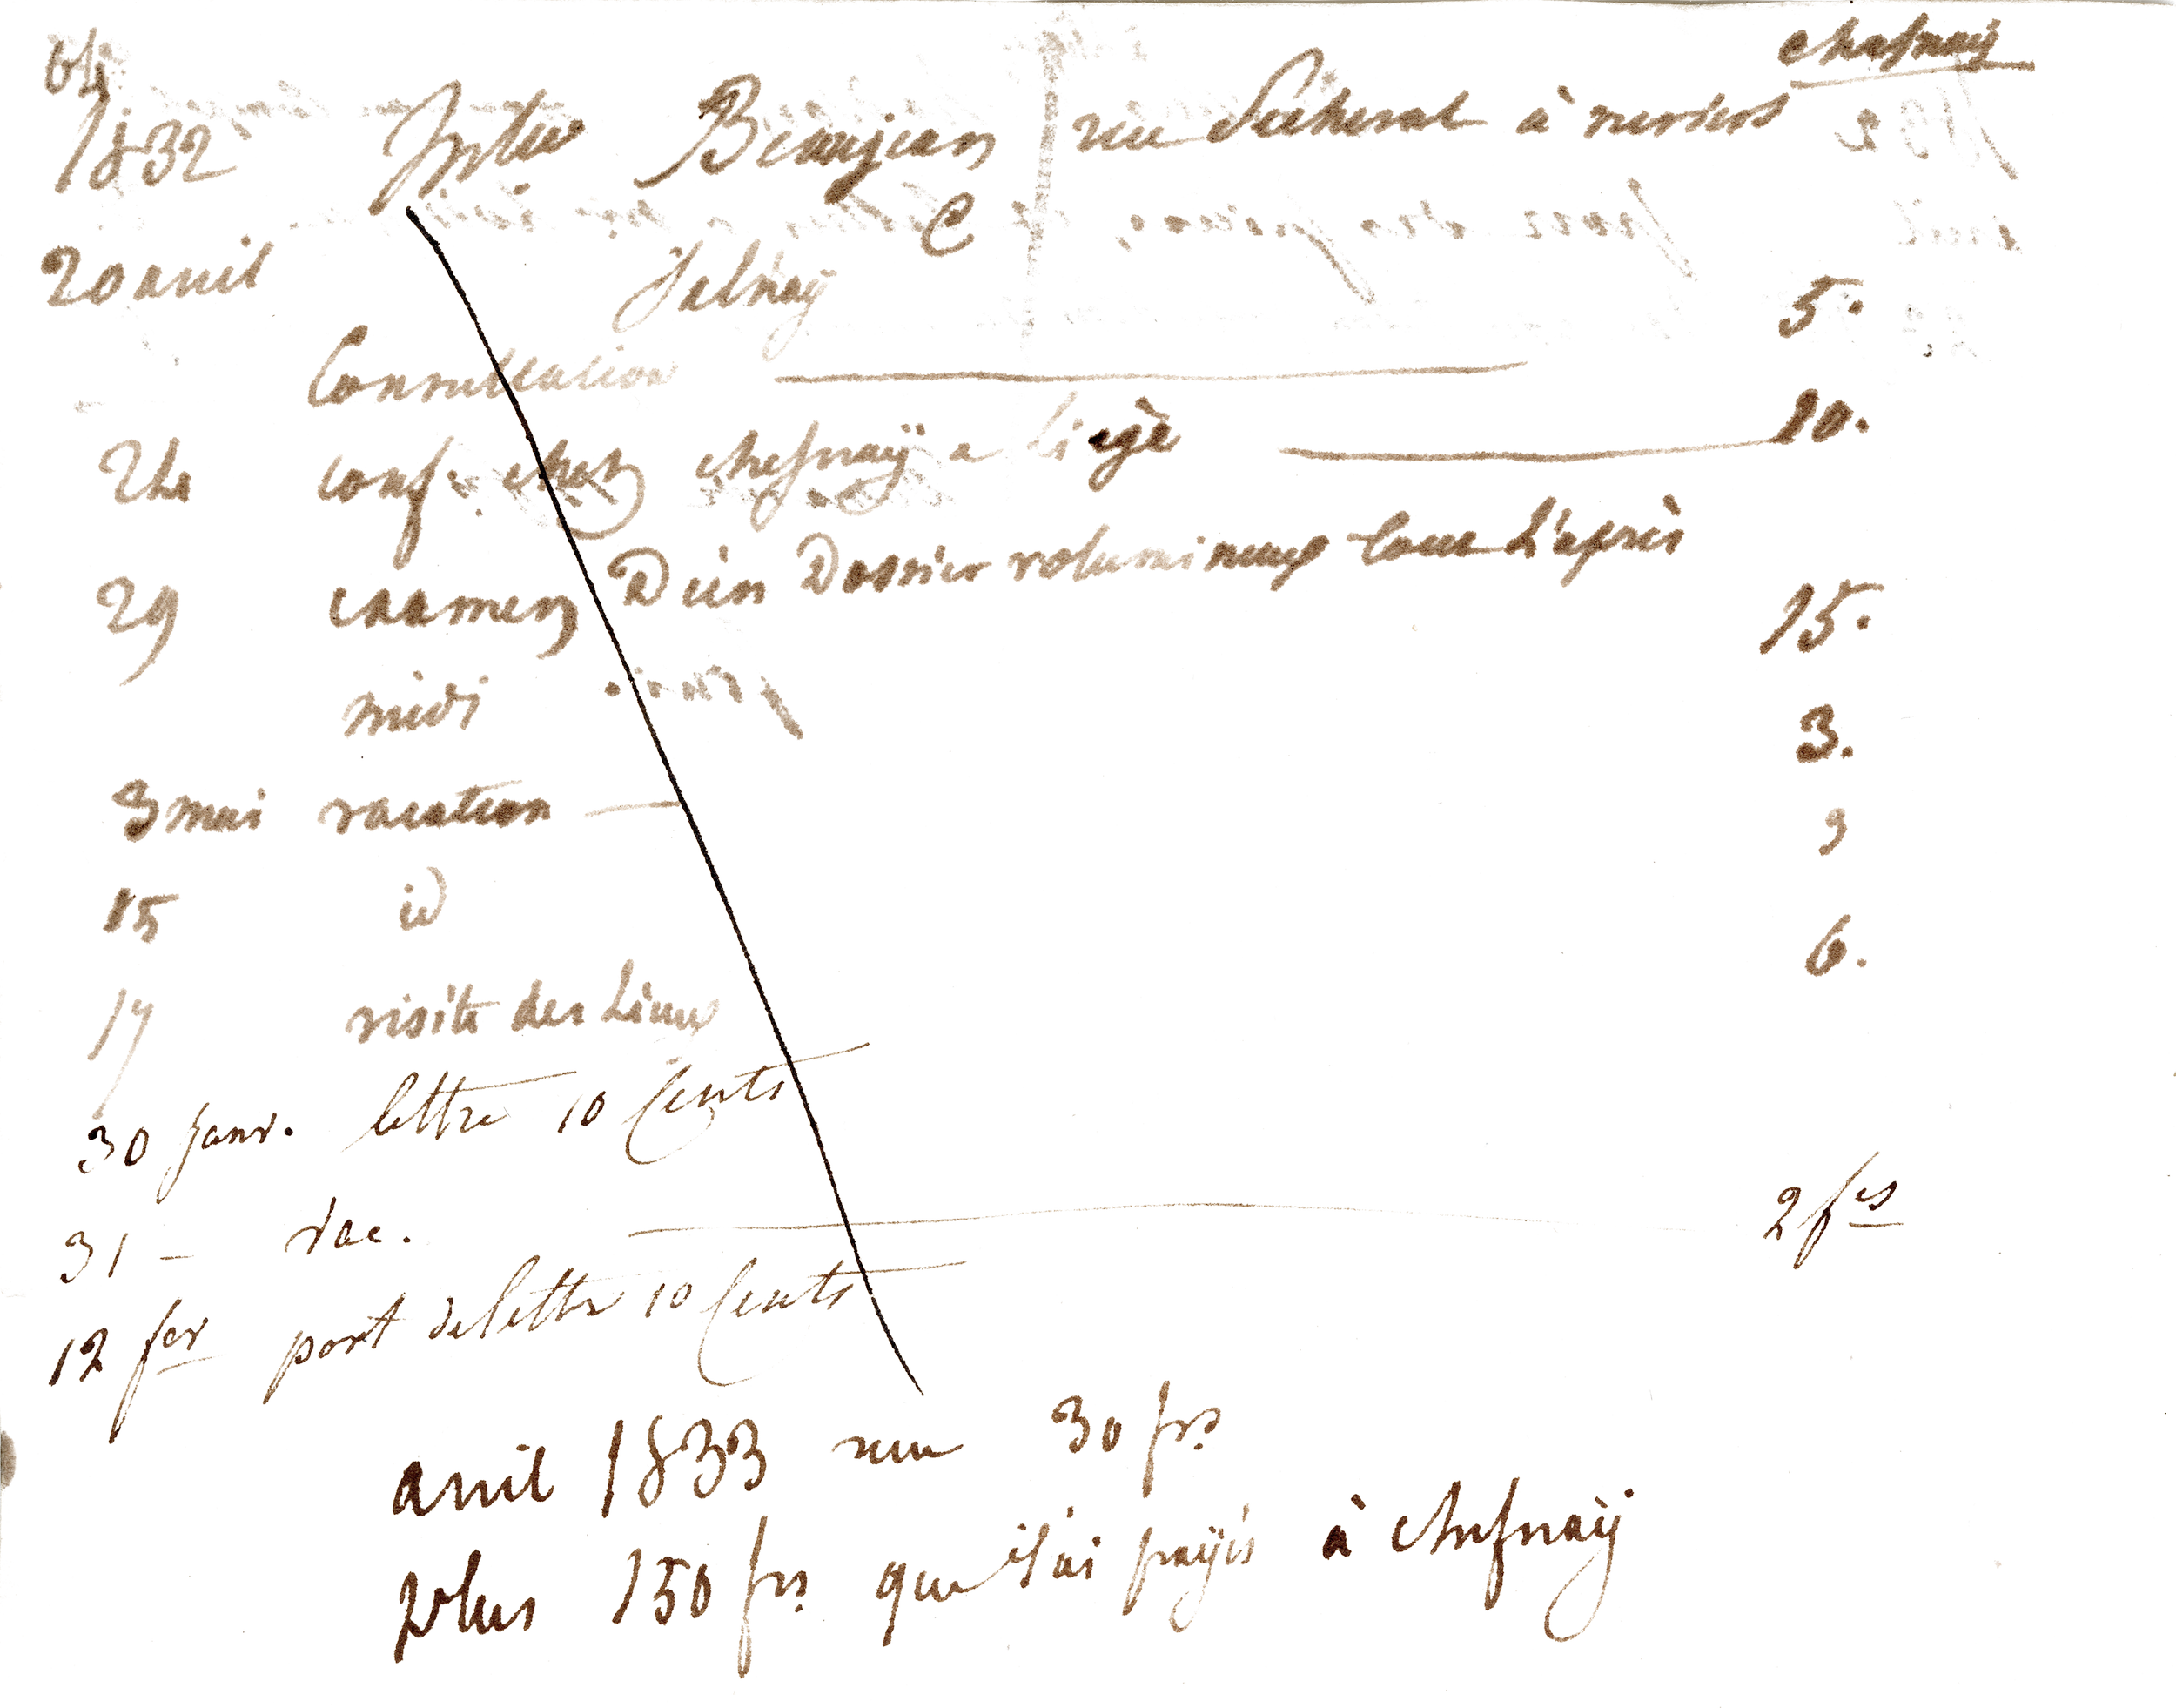 64
chefnaÿ
1832 Beaujean rue Sécheval à verviers
C
20 avril Jalhaÿ
Consultation 5.
24 conf. chez chefnaÿ a Liège 10.
29 examen D'un Dossier volumineux tout L'après
midi 15.
3 mai vacation 3.
15 id 3
17 visite des Lieux 6.
30 Janv. lettre 10 Cents
31 - vac. 2 frs
12 fer port de lettre 10 Cents
avril 1833 reçu 30 frs
plus 150 frs que j'ai payés à chefnaÿ